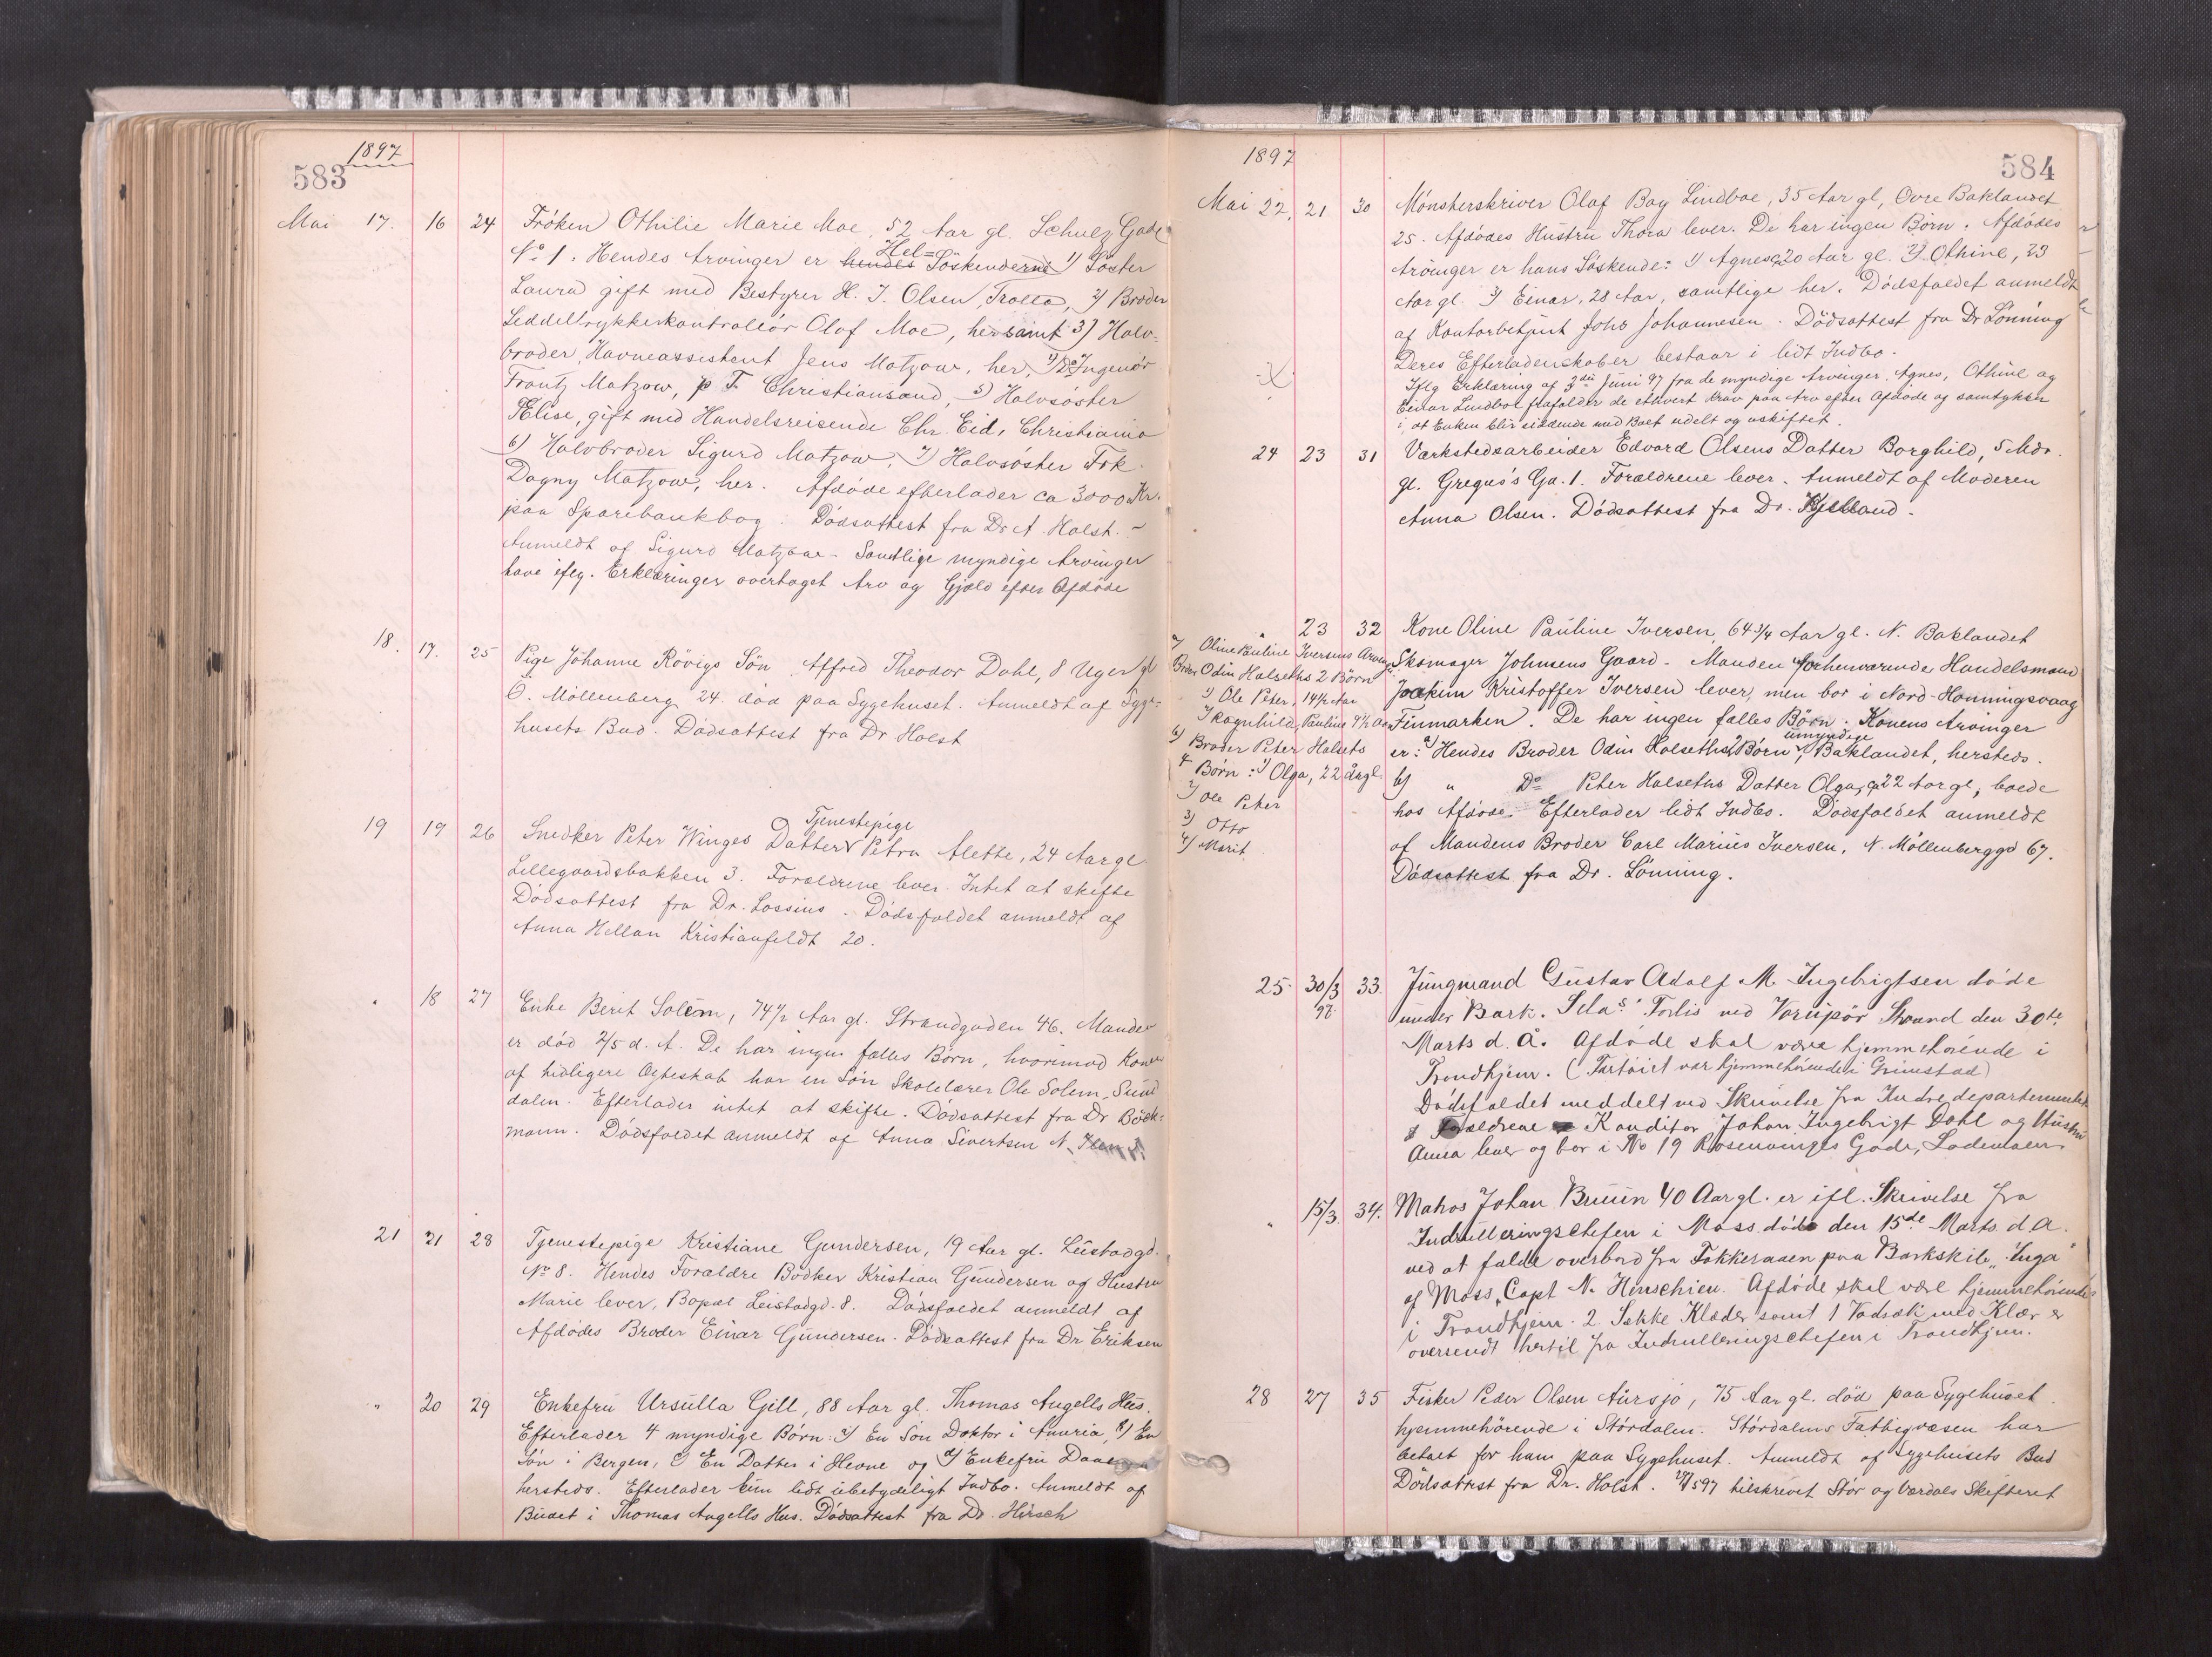 1897
583
Mai 17. 16 24 Fröken Othilie Marie Moe, 52 Aar gl. Schulz Gade
No 1. Hendes Arvinger er hendes Hel= Söskenderne 1) Söster
Laura gift med Bestyrer H. J. Olsen, Trolla, 2) Broder
Leddeltrykkerkontrollör Olof Moe, her samt 3) Halv-
broder, Havneassistent Jens Matzow, her, 4) Do Ingeniör
Frantz Matzow, p. T. Christiansand, 5) Halvsöster
Elise, gift med Handelsreisende Chr. Eid, Christiania
6) Halvbroder Sigurd Matzow, 7) Halvsöster Frk.
Dagny Matzow, her. Afdöde efterlader ca 3000 Kr.
paa Sparebankbog. Dödsattest fra Dr A. Holst. -
Anmeldt af Sigurd Matzow - Samtlige myndige Arvinger
have iflg. Erklæringer overtaget Arv og Gjæld efter Afdöde
18. 17. 25 Pige Johanne Rövigs Sön Alfred Theodor Dahl, 8 Uger gl
Ö. Möllenberg 24. död paa Sygehuset. Anmeldt af Syge-
husets Bud. Dödsattest fra Dr Holst
19 19 26 Snedker Peter Winges Datter Tjenestepige Petra Alette, 24 Aar gl
Lillegaardsbakken 3. Forældrene lever. Intet at skifte
Dödsattest fra Dr. Lossius. Dödsfaldet anmeldt af
Anna Hellan Kristianfeldt 20.
" 18 27 Enke Berit Solem, 74 1/2 Aar gl. Strandgaden 46. Manden
er död 2/5 d. A. De har ingen fælles Börn, hvorimod Konen
af tidligere Ægteskab har en Sön Skolelærer Ole Solem, Sund
dalen. Efterlader intet at skifte. Dödsattest fra Dr Böck-
mann. Dödsfaldet anmeldt af Anna Sivertsen N.
21 21 28 Tjenestepige Kristiane Gundersen, 19 Aar gl. Leistadgd.
No 8. Hendes Forældre Bödker Kristian Gundersen og Hustru
Marie lever, Bopæl Leistadgd. 8. Dödsfaldet anmeldt af
Afdödes Broder Einar Gundersen. Dödsattest fra Dr Eriksen
" 20 29 Enkefru Ursulla Gill, 88 Aar gl. Thomas Angells Hus.
Efterlader 4 myndige Börn: a) En Sön Doktor i Amerika, b) En
Sön i Bergen, c) En Datter i Hevne og d) Enkefru
hersteds. Efterlader kun lidt ubetydeligt Indbo. Anmeldt af
Budet i Thomas Angells Hus. Dödsattest fra Dr. Hirsch
1897
584
Mai 22, 21 30 Mönsterskriver Olaf Bay Lindboe, 35 Aar gl, Övre Baklandet
25. Afdödes Hustru Thora lever. De har ingen Börn. Afdödes
Arvinger er hans Söskende: 1) Agnes, 20 Aar gl. 2) Othine, 23
Aar gl. 3) Einar, 28 Aar, samtlige her. Dödsfaldet anmeldt
af Kontorbetjent Johs Johannesen. Dödsattest fra Dr Lönning
Deres Efterladenskaber bestaar i lidt Indbo.
Iflg Erklæring af 3die Juni 97 fra de myndige Arvinger, Agnes, Othine og
Einar Lindboe frafalder de ethvert Krav paa Arv efter Afdöde og samtykker
i, at Enken blir siddende med Boet udelt og uskiftet.
24 23 31 Værkstedsarbeider Edvard Olsens Datter Borghild, 5 Mdr.
gl. Gregus's Ga. 1. Forældrene lever. Anmeldt af Moderen
Anna Olsen. Dödsattest fra Dr. Kjelland.
" 23 32 Kone Oline Pauline Iversen, 64 3/4 Aar gl. N. Baklandet
Skomager Johnsens Gaard. Manden forhenværende Handelsmand
Joakim Kristoffer Iversen lever, men bor i Nord-Honningsvaag
Finmarken. De har ingen fælles Börn. Konens Arvinger
er: a) Hendes Broder Odin Halseths 2 umyndige Börn, Baklandet, hersteds.
b) " Do Peter Halseths Datter Olga, ca 22 Aar gl, boede
hos Afdöde. Efterlader lidt Indbo. Dödsfaldet anmeldt
af Mandens Broder Carl Marius Iversen, N. Möllenberggd 67.
Dödsattest fra Dr. Lönning.
a) Oline Pauline Iversens Arvinger
Broder Odin Halseths 2 Börn
1) Ole Peter, 14 1/2 Aar
2) Ragnhild, Pauline 4 1/2 Aar
b) Broder Peter Halsets
4 Börn: 1) Olga, 22 år gl.
2) Ole Peter
3) Otto
4) Marit
25. 30/3 98. 33. Jungmand Gustav Adolf M. Ingebrigtsen döde
under Bark. Selas' Forlis ved Vorupör Strand den 30te
Marts d. Å. Afdöde skal være hjemmehörende i
Trondhjem. (Fartöiet var hjemmehörende i Grimstad)
Dödsfaldet meddelt ved Skrivelse fra Indredepartementet
Forældrene Konditor Johan Ingebrigt Dahl og Hustru
Anna lever og bor i No 19 Rosenvinges Gade, Lademoen
" 15/3. 34. Matros Johan Bruun 40 Aar gl. er ifl. Skrivelse fra
Indrulleringschefen i Moss döde den 15de Marts d. A.
ved at falde overbord fra Fokkeraaen paa Barkskib „Inga"
af Moss, Capt N. Henschien. Afdöde skal være hjemmehörende
i Trondhjem. 2 Sække Klæder samt 1 Vadsæk med Klær er
oversendt hertil fra Indrulleringschefen i Trondhjem.
28 27 35 Fisker Peder Olsen Aursjö, 75 Aar gl. död paa Sygehuset
hjemmehörende i Stördalen. Stördalens Fattigvæsen har
betalt for ham paa Sygehuset. Anmeldt af Sygehusets Bud
Dödsattest fra Dr. Holst. 28/5 97 tilskrevet Stör og Værdals Skifteret